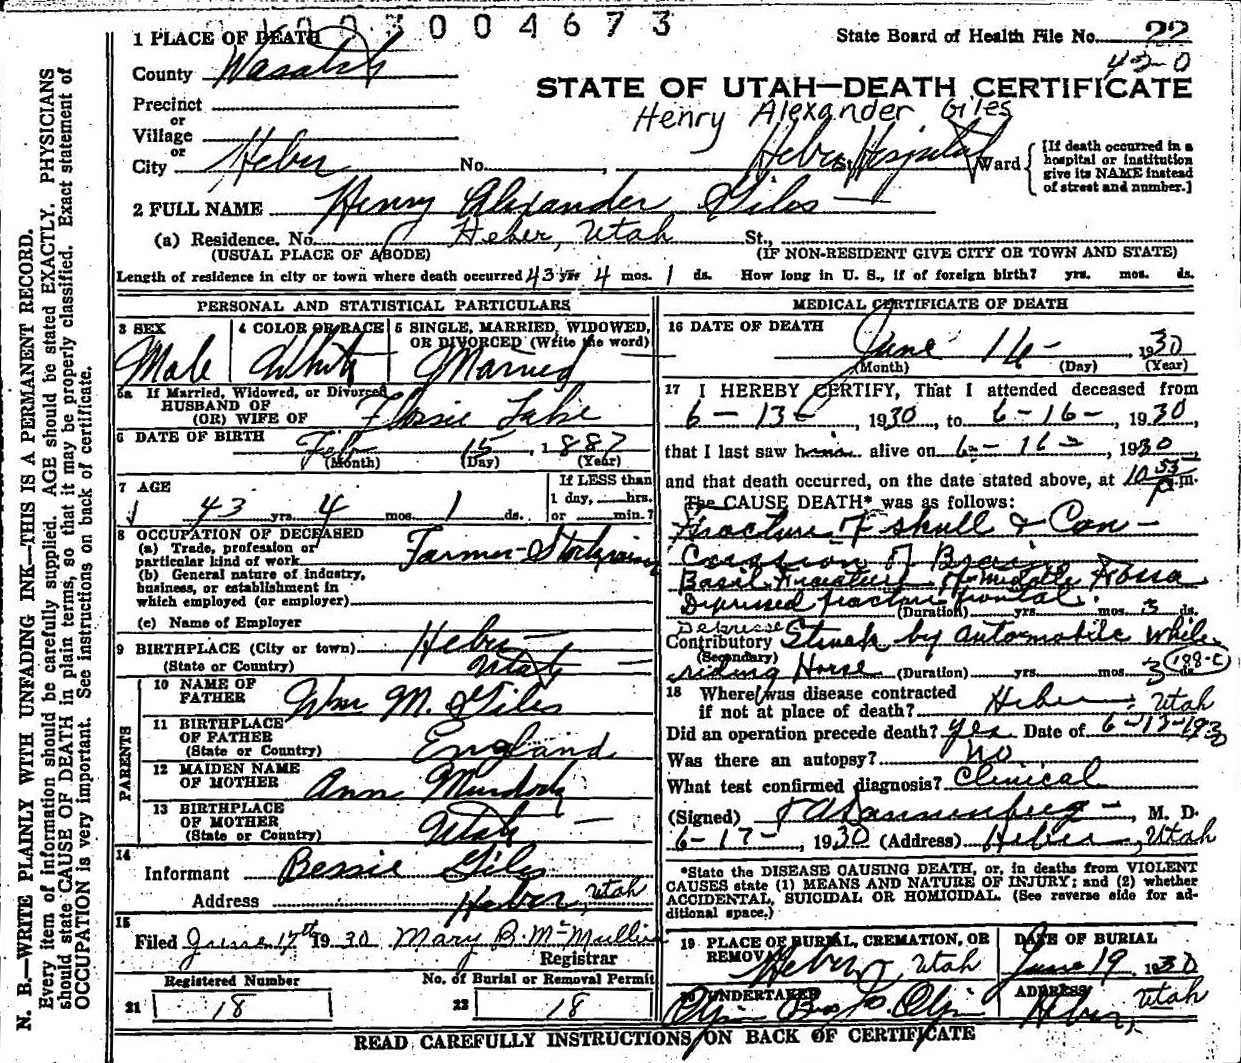 3 0 0 4 6 7 3
1 PLACE OF DEATH
State Board of Health File No. 22
42-0
County Wasatch
STATE OF UTAH—DEATH CERTIFICATE
Precinct
or
Henry Alexander Giles
Village
or
City Heber No. , Heber Hospital St., Ward
[If death occurred in a hospital or institution give its NAME instead of street and number.]
2 FULL NAME Henry Alexander Giles
(a) Residence. No. Heber, Utah St.,
(USUAL PLACE OF ABODE) (IF NON-RESIDENT GIVE CITY OR TOWN AND STATE)
Length of residence in city or town where death occurred 43 yrs 4 mos. 1 ds. How long in U. S., if of foreign birth? yrs. mos. ds.
PERSONAL AND STATISTICAL PARTICULARS
3 SEX Male
4 COLOR OR RACE White
5 SINGLE, MARRIED, WIDOWED, OR DIVORCED (Write the word) Married
5a If Married, Widowed, or Divorced
HUSBAND OF
(OR) WIFE OF
6 DATE OF BIRTH Feb 15, 1887
(Month) (Day) (Year)
7 AGE 43 yrs. 4 mos. 1 ds.
If LESS than
1 day, hrs.
or min.?
8 OCCUPATION OF DECEASED
(a) Trade, profession or
particular kind of work Farmer-Stockraising
(b) General nature of industry,
business, or establishment in
which employed (or employer)
(c) Name of Employer
9 BIRTHPLACE (City or town) Heber
(State or Country) Utah
PARENTS
10 NAME OF FATHER Wm M. Giles
11 BIRTHPLACE OF FATHER
(State or Country) England
12 MAIDEN NAME OF MOTHER Ann Murdock
13 BIRTHPLACE OF MOTHER
(State or Country) Utah
14
Informant Bessie Giles
Address Heber, Utah
15
Filed June 17th 1930 Mary B. McMullin
Registrar
Registered Number
21 18
No. of Burial or Removal Permit
22 18
MEDICAL CERTIFICATE OF DEATH
16 DATE OF DEATH June 16, 1930
(Month) (Day) (Year)
17 I HEREBY CERTIFY, That I attended deceased from
6-13-, 1930, to 6-16-, 1930,
that I last saw him alive on 6-16-, 1930,
and that death occurred, on the date stated above, at 10 55 p.m.
The CAUSE DEATH* was as follows:
Fracture of skull & Con-
cussion of Brain
Basil Fracture of middle Fossa
Depressed fracture frontal.
(Duration) yrs. mos. 3 ds.
Contributory Struck by automobile while
(Secondary)
riding Horse (Duration) yrs. mos. 3 ds. 188-c
18 Where was disease contracted
if not at place of death? Heber, Utah
Did an operation precede death? Yes Date of 6-13-1930
Was there an autopsy? No
What test confirmed diagnosis? Clinical
(Signed) Dannenberg, M. D.
6-17-, 1930 (Address) Heber, Utah
*State the DISEASE CAUSING DEATH, or, in deaths from VIOLENT
CAUSES state (1) MEANS AND NATURE OF INJURY; and (2) whether
ACCIDENTAL, SUICIDAL OR HOMICIDAL. (See reverse side for ad-
ditional space.)
19 PLACE OF BURIAL, CREMATION, OR REMOVAL Heber, Utah
DATE OF BURIAL June 19, 1930
20 UNDERTAKER Olpin
ADDRESS Heber, Utah
READ CAREFULLY INSTRUCTIONS ON BACK OF CERTIFICATE
N. B.—WRITE PLAINLY WITH UNFADING INK—THIS IS A PERMANENT RECORD.
Every item of information should be carefully supplied. AGE should be stated EXACTLY. PHYSICIANS
should state CAUSE OF DEATH in plain terms, so that it may be properly classified. Exact statement of
OCCUPATION is very important. See instructions on back of certificate.